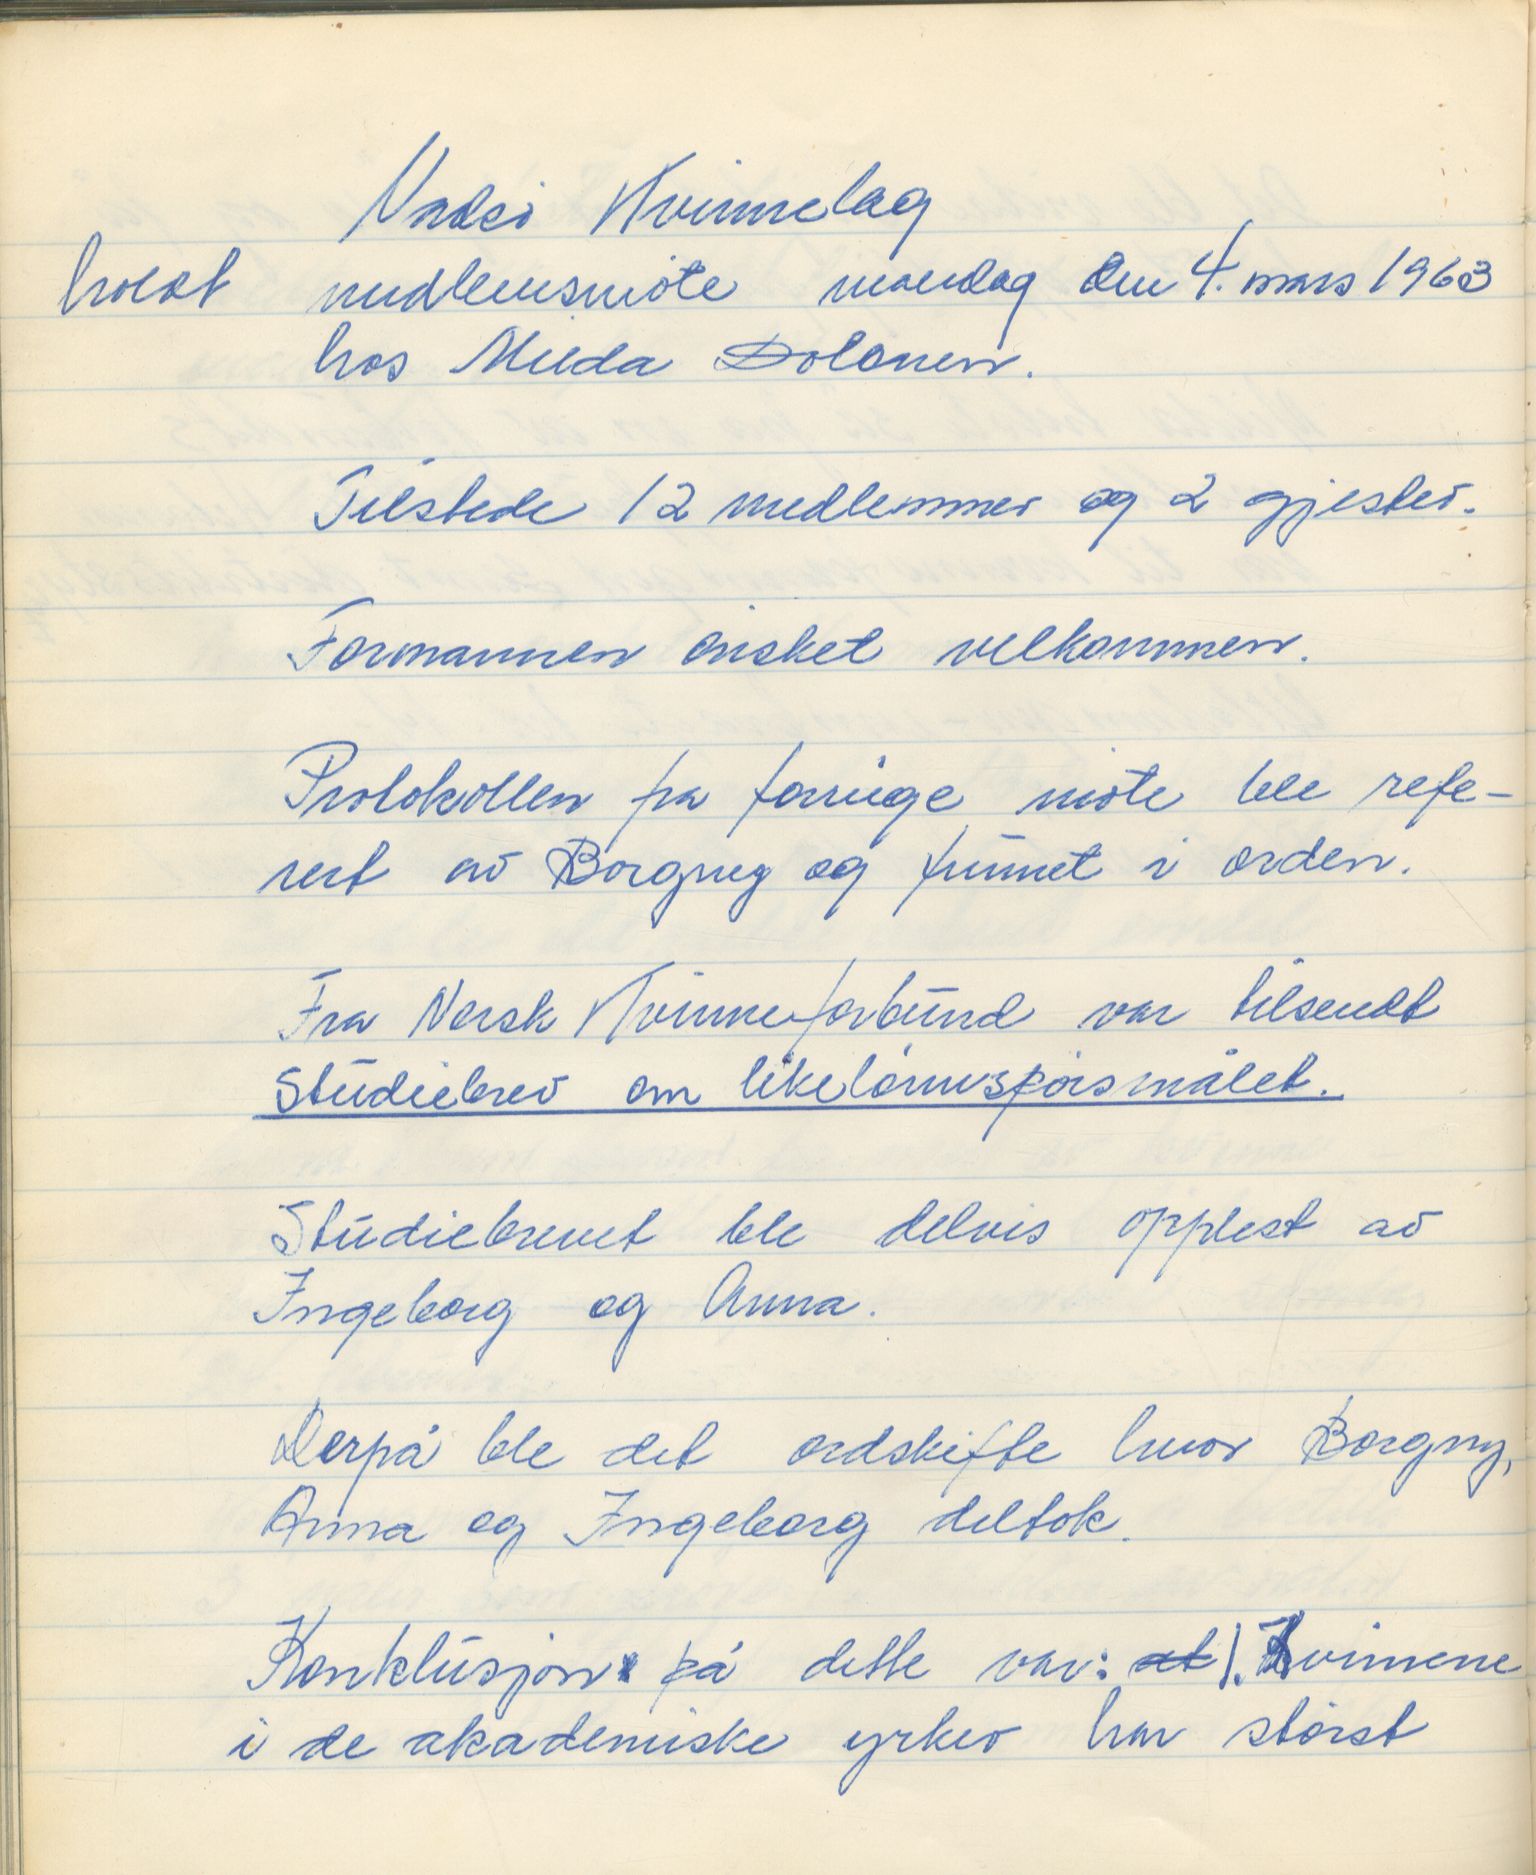 Vadsø Kvinnelag
holdt medlemsmøte mandag den 4. mars 1963
hos Milda Dolonen.
Tilstede 12 medlemmer og 2 gjester.
Formannen ønsket velkommen.
Protokollen fra forrige møte ble refe-
rert av Borgny og funnet i orden.
Fra Norsk Kvinneforbund var tilsendt
Studiebrev om likelønnsspørsmålet.
Studiebrevet ble delvis opplest av
Ingeborg og Anna.
Derpå ble det ordskifte hvor Borgny,
Anna og Ingeborg deltok.
Konklusjon på dette var: at 1. Kvinnene
i de akademiske yrker har størst